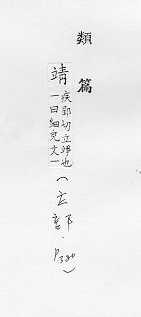 類篇
靖
疾郢切立竫也
一曰細皃文一
(立部.P380)